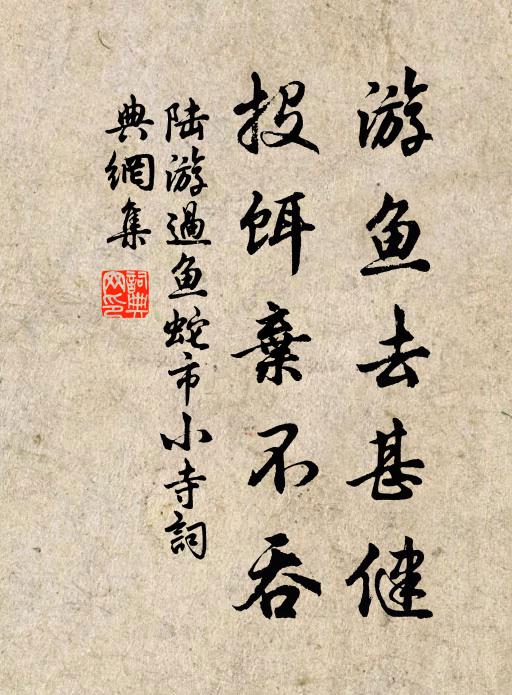 游鱼去甚健
投饵棄不吞
陆游過鱼蛇市小寺詞
典網集
詞典网印